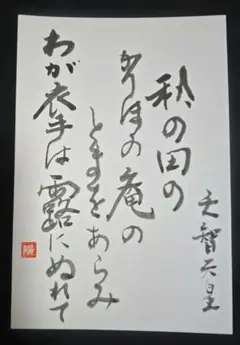 天智天皇
秋の田の
かりほの庵の
とまをあらみ
わが衣手は露にぬれて
陽